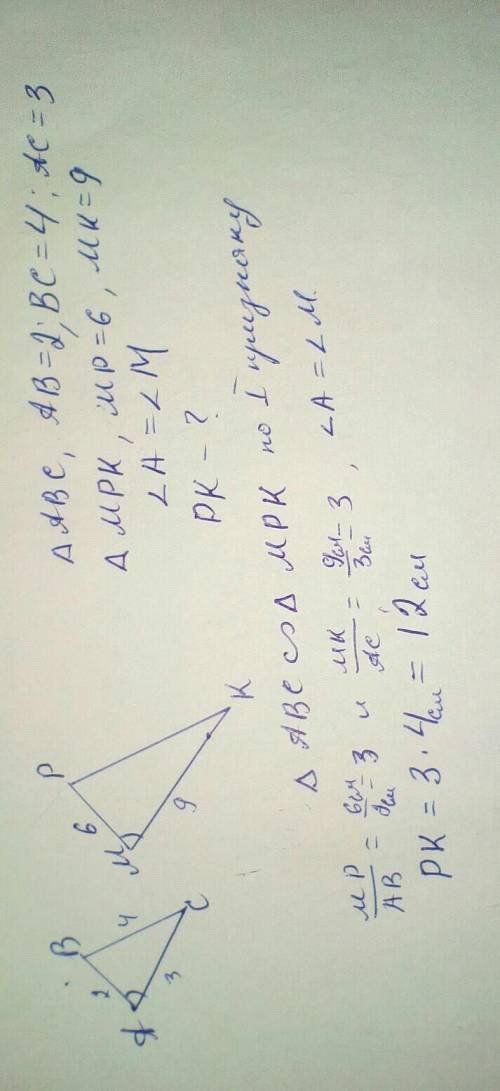 △ ABC, AB=2; BC=4; AC=3
△ MPK, MP=6, MK=9
∠A=∠M
PK-?
B
2
4
A
3
C
P
6
M
9
K
△ ABC ∽ △ MPK по I признаку
MP/AB = 6см/2см = 3 и MK/AC = 9см/3см = 3, ∠A=∠M.
PK = 3·4см = 12см